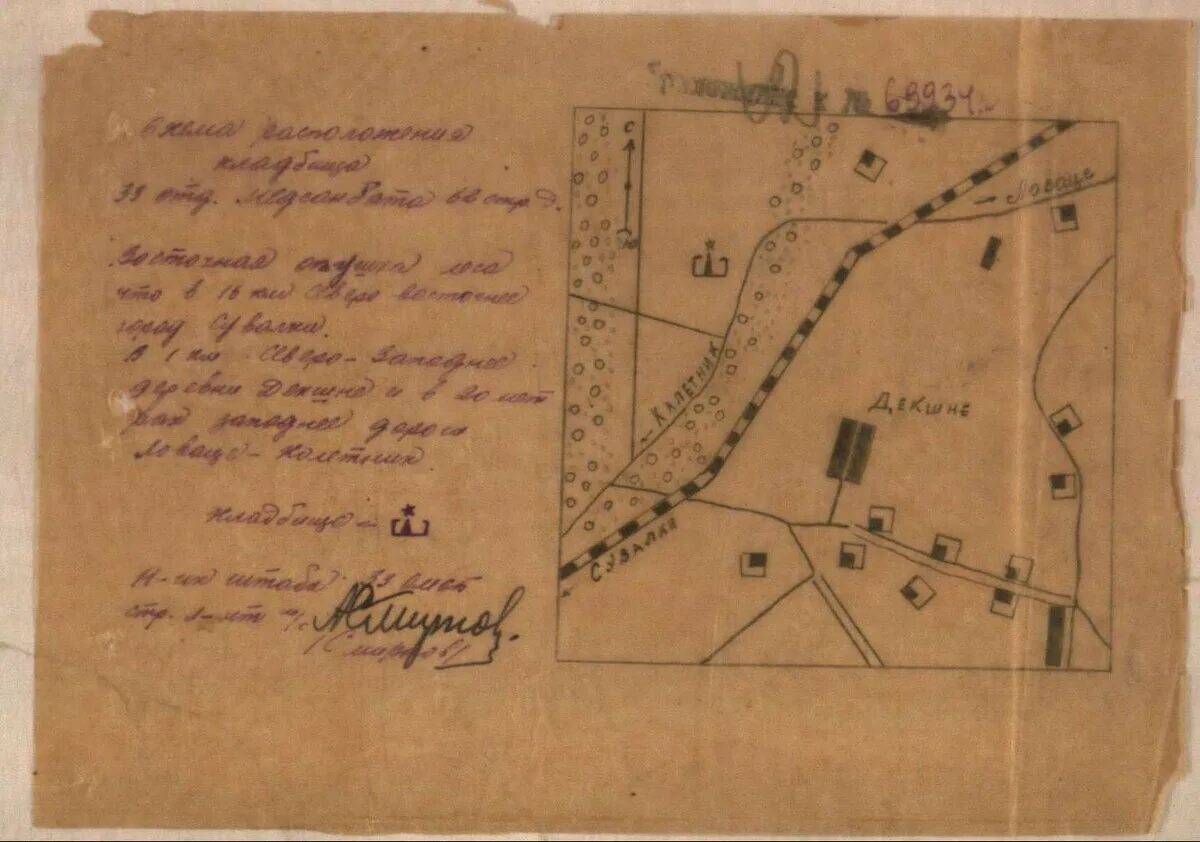 Схема расположения
кладбища
33 отд. Медсанбата 62 стр. Д.
Восточная опушка леса
что в 16 км Северо-восточнее
город Сувалки.
В 1 км Северо-Западнее
деревни Декшне и в 20 мет
рах западнее дороги
Ловаще - Колетник.
Кладбище -
Н-ик штаба 33 омсб
стр. л-нт
/Смирнов/
к № 69934
С
Ю
Ловаще
Калетник
Декшне
Сувалки